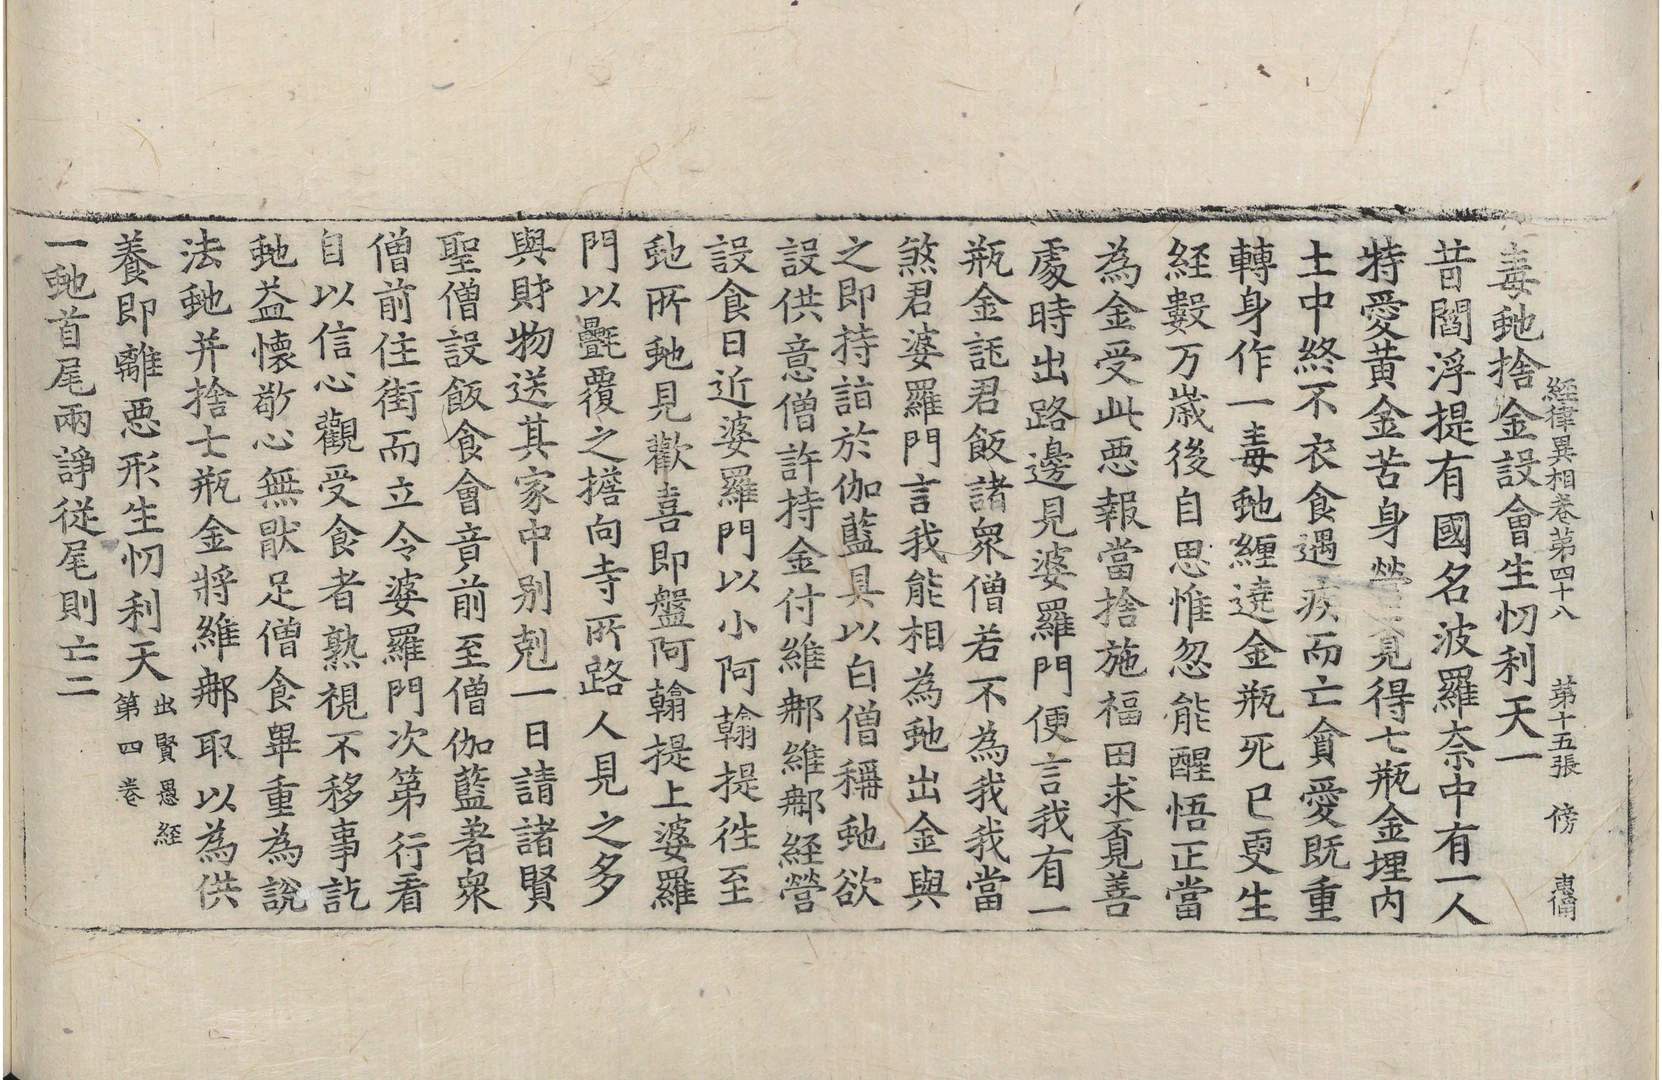 経律異相卷第四十八 第十五張 傍 惠僃
毒虵捨金設會生忉利天一
昔閻浮提有國名波羅奈中有一人
特愛黃金苦身營覔得七瓶金埋內
土中終不衣食遇疾而亡貪愛既重
轉身作一毒虵纏遶金瓶死已更生
経數万歲後自思惟忽能醒悟正當
為金受此惡報當捨施福田求覔善
處時出路邊見婆羅門便言我有一
瓶金託君飯諸衆僧若不為我我當
煞君婆羅門言我能相為虵出金與
之即持詣於伽藍具以白僧稱虵欲
設供意僧許持金付維那維那経營
設食日近婆羅門以小阿翰提徃至
虵所虵見歡喜即盤阿翰提上婆羅
門以㲲覆之擔向寺所路人見之多
與財物送其家中別剋一日請諸賢
聖僧設飯食會音前至僧伽藍著衆
僧前住街而立令婆羅門次第行看
自以信心觀受食者熟視不移事訖
虵益懷敬心無猒足僧食畢重為說
法虵并捨七瓶金將維那取以為供
養即離惡形生忉利天出賢愚経第四卷
一虵首尾兩諍従尾則亡二